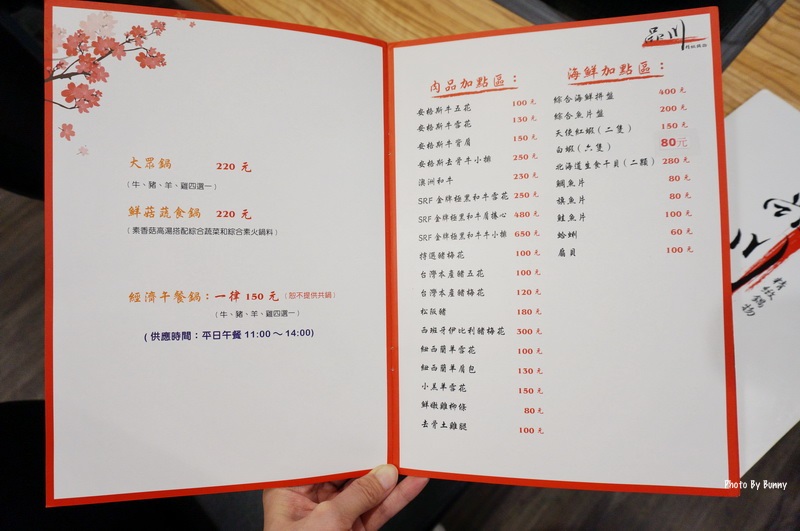 大眾鍋 220 元
(牛、豬、羊、雞四選一)
鮮菇蔬食鍋 220 元
(素香菇高湯搭配綜合蔬菜和綜合素火鍋料)
經濟午餐鍋：一律 150 元 (恕不提供共鍋)
(牛、豬、羊、雞四選一)
(供應時間：平日午餐 11:00～14:00)
品川
精緻鍋物
肉品加點區：
安格斯牛五花 100 元
安格斯牛雪花 130 元
安格斯牛背肩 150 元
安格斯去骨牛小排 250 元
澳洲和牛 230 元
SRF 金牌極黑和牛雪花 250 元
SRF 金牌極黑和牛肩捲心 480 元
SRF 金牌極黑和牛牛小排 650 元
特選豬梅花 100 元
台灣本產豬五花 100 元
台灣本產豬梅花 120 元
松阪豬 180 元
西班牙伊比利豬梅花 300 元
紐西蘭羊雪花 100 元
紐西蘭羊肩包 130 元
小羔羊雪花 150 元
鮮嫩雞柳條 80 元
去骨土雞腿 100 元
海鮮加點區：
綜合海鮮拼盤 400 元
綜合魚片盤 200 元
天使紅蝦(二隻) 150 元
白蝦(六隻) 80元
北海道生食干貝(二顆) 280 元
鯛魚片 80 元
旗魚片 80 元
鮭魚片 100 元
蛤蜊 60 元
扇貝 100 元
精緻鍋物
Photo By Bunny